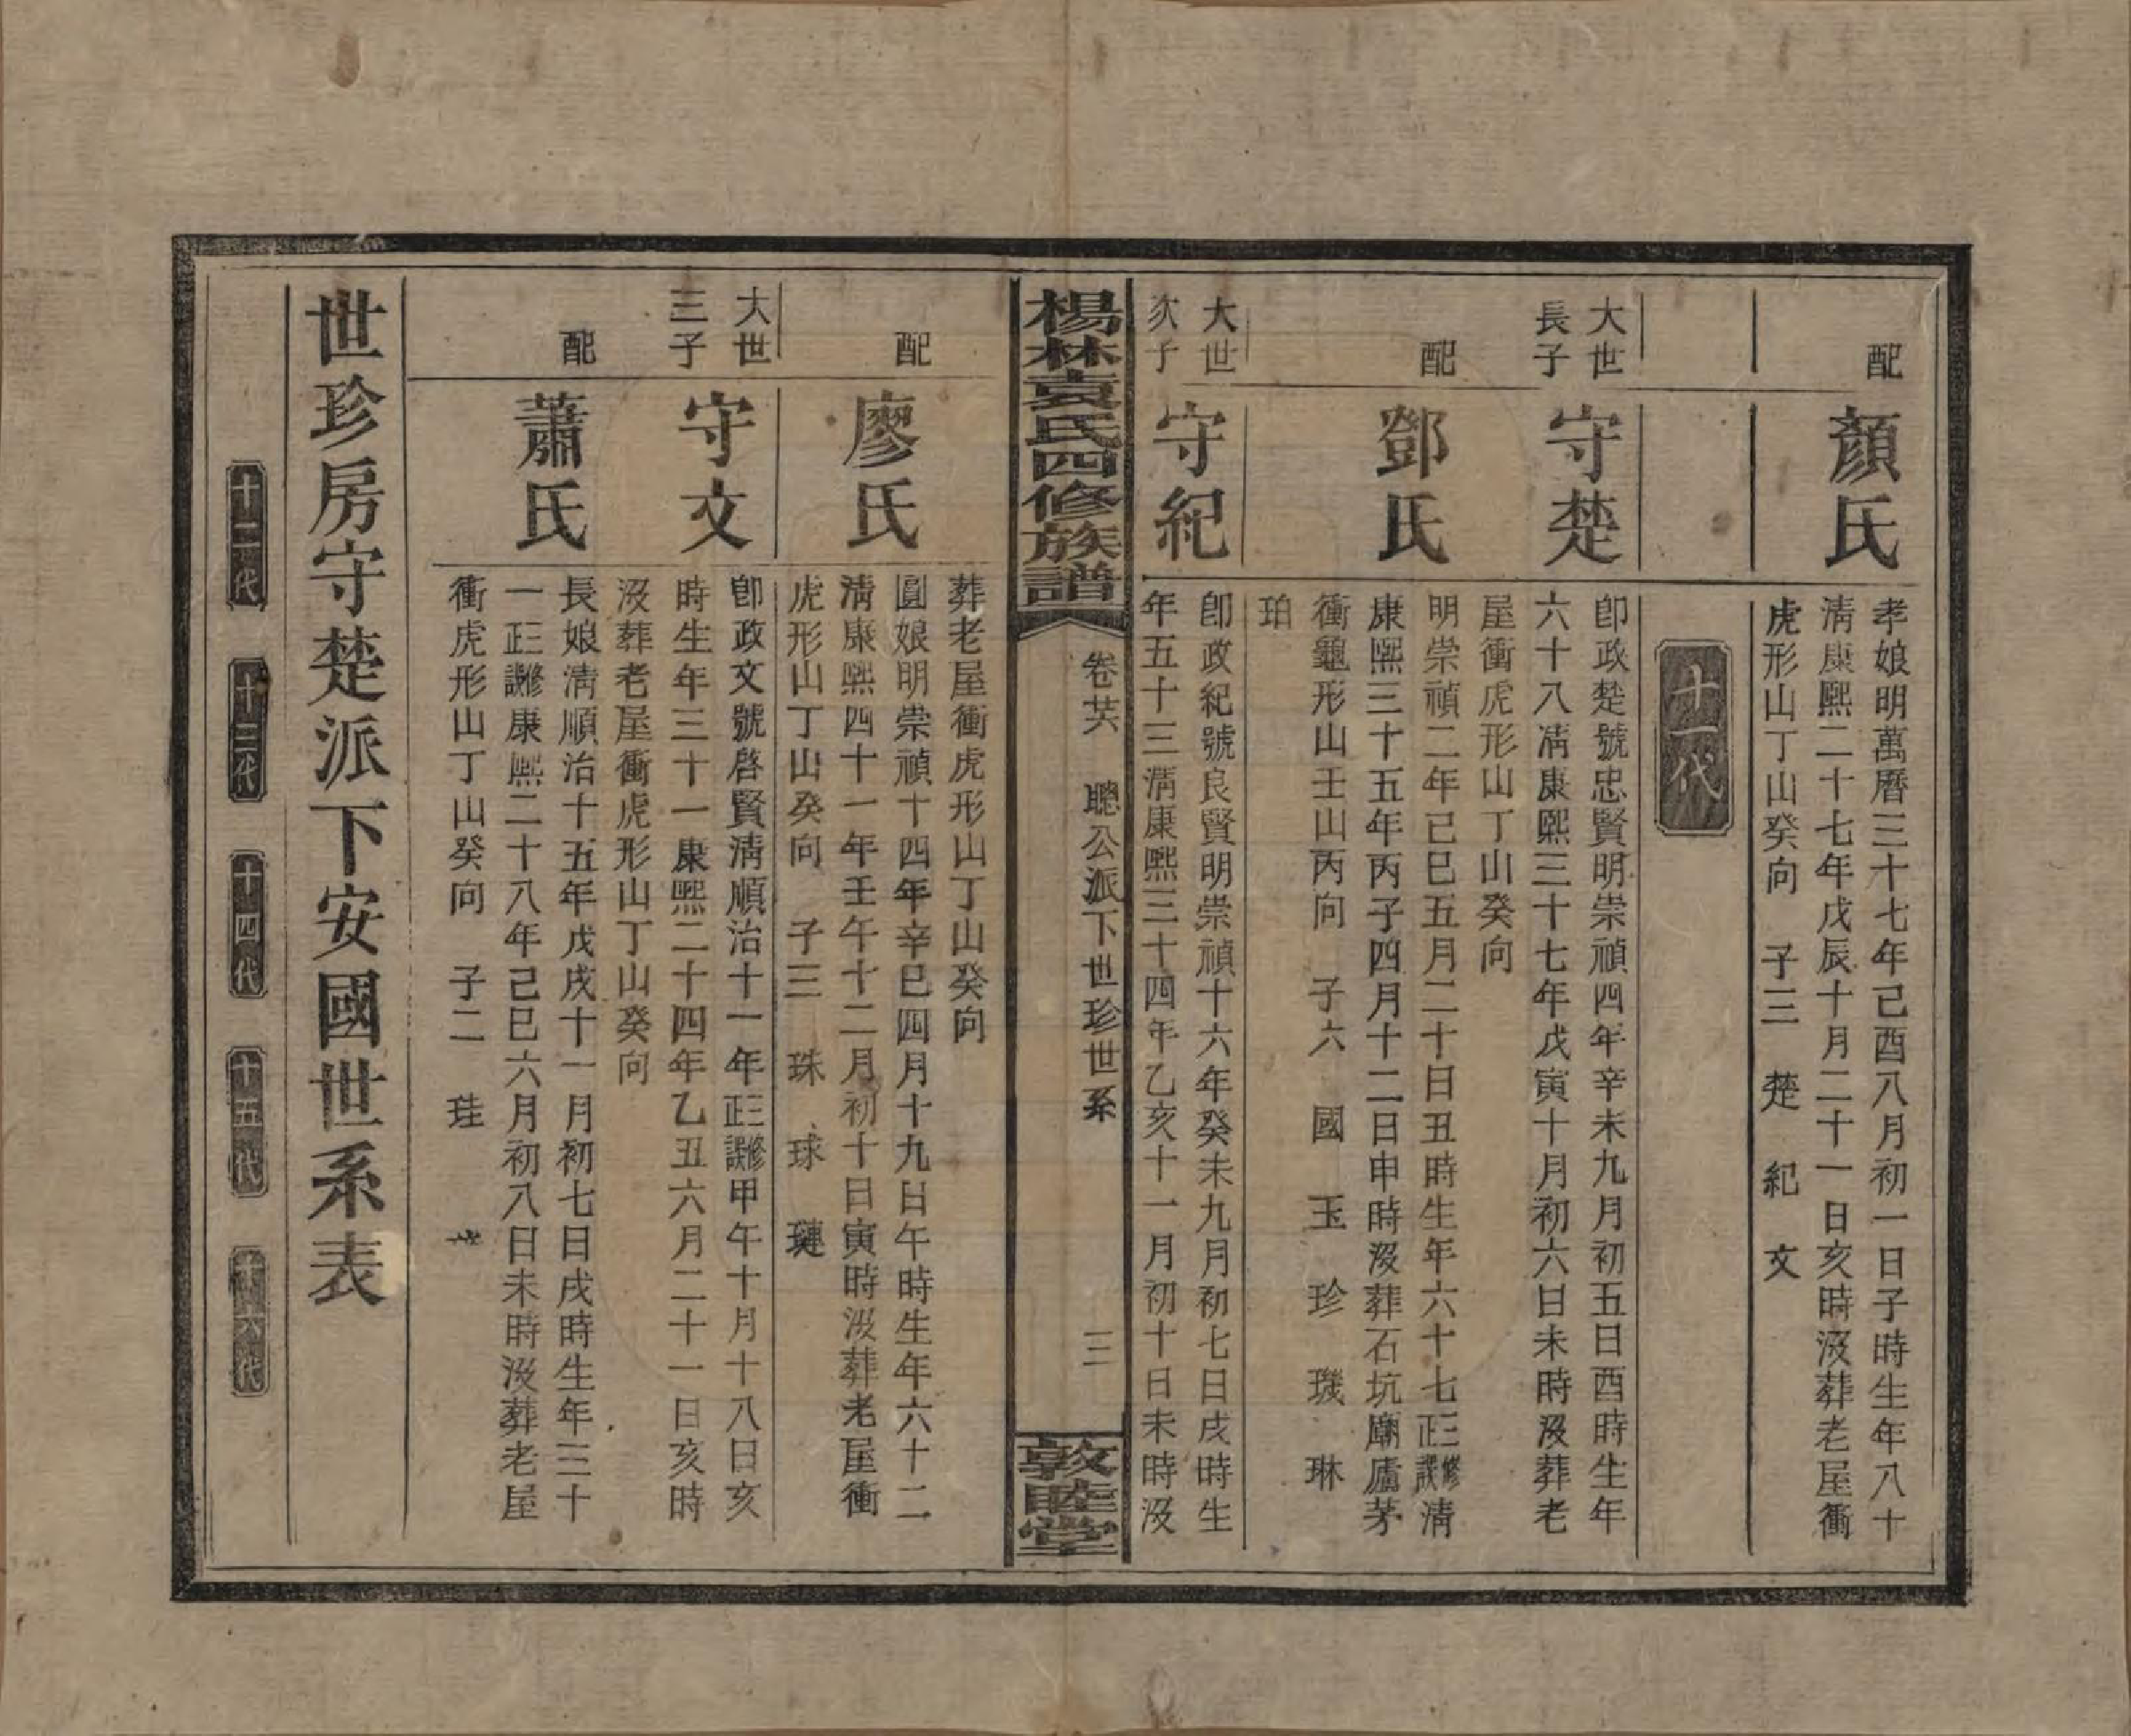 配
顏氏
孝娘明萬曆三十七年己酉八月初一日子時生年八十
淸康熙二十七年戊辰十月二十一日亥時沒葬老屋衝
虎形山丁山癸向 子三 楚 紀 文
十一代
大世
長子
守楚
卽政楚號忠賢明崇禎四年辛未九月初五日酉時生年
六十八淸康熙三十七年戊寅十月初六日未時沒葬老
屋衝虎形山丁山癸向
配
鄧氏
明崇禎二年己巳五月二十日丑時生年六十七正三修誤淸
康熙三十五年丙子四月十二日申時沒葬石坑廟廬茅
衝龜形山壬山丙向 子六 國 玉 珍 璣 琳
珀
大世
次子
守紀
卽政紀號良賢明崇禎十六年癸未九月初七日戌時生
年五十三淸康熙三十四年乙亥十一月初十日未時沒
楊林袁氏四修族譜
卷 聰公派下世珍世系
三
敦睦堂
葬老屋衝虎形山丁山癸向
配
廖氏
圓娘明崇禎十四年辛巳四月十九日午時生年六十二
淸康熙四十一年壬午十二月初十日寅時沒葬老屋衝
虎形山丁山癸向 子三 珠 球 璉
大世
三子
守文
卽政文號啓賢淸順治十一年正三修誤甲午十月十八日亥
時生年三十一康熙二十四年乙丑六月二十一日亥時
沒葬老屋衝虎形山丁山癸向
配
蕭氏
長娘淸順治十五年戊戌十一月初七日戌時生年三十
一正三修誤康熙二十八年己巳六月初八日未時沒葬老屋
衝虎形山丁山癸向 子二 珪
世珍房守楚派下安國世系表
十二代
十三代
十四代
十五代
十六代